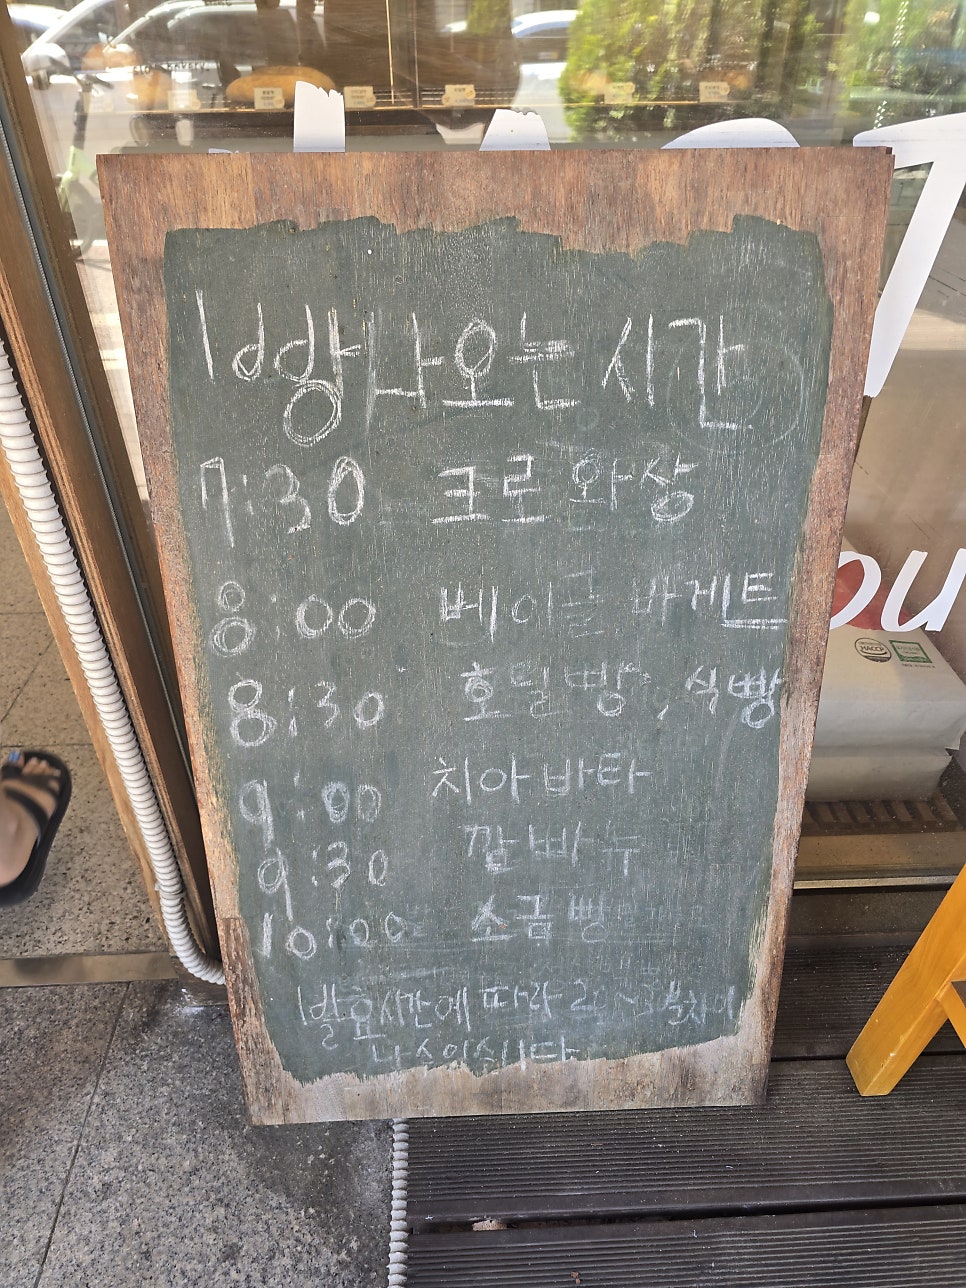 빵 나오는 시간
7:30 크로와상
8:00 베이글 바게트
8:30 호밀빵, 식빵
9:00 치아바타
9:30 깜빠뉴
10:00 소금빵
발효시간에 따라 20~30분 차이
나 수 있습니다
ou
HACCP